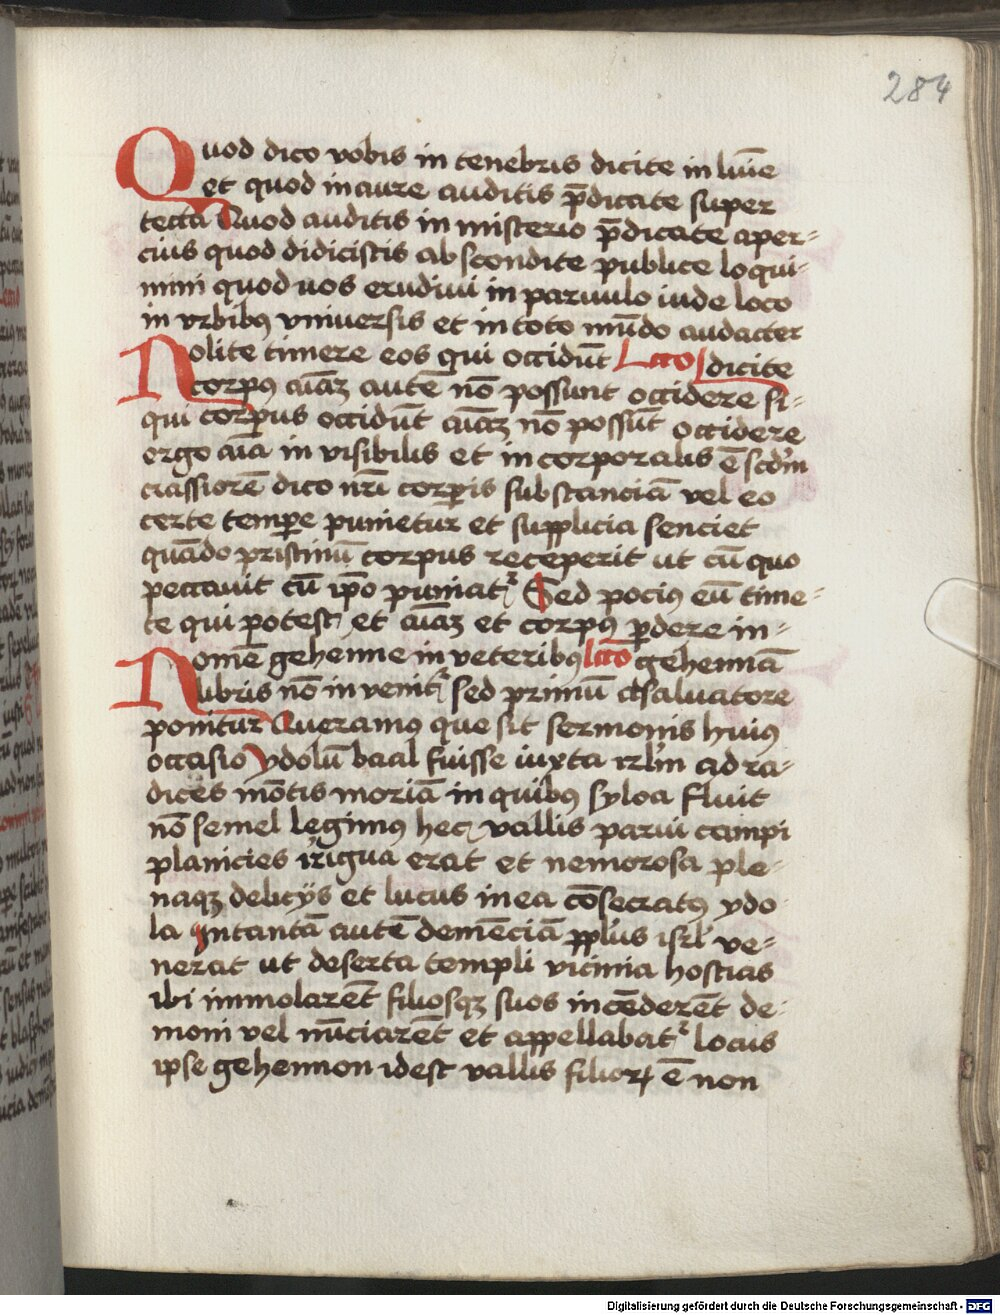 284
Quod dico vobis in tenebris dicite in lūie
et quod in aure auditis p̄dicate super
tecta Quod auditis in misterio p̄dicate aper⸗
cius quod didicistis abscondite publice loqui⸗
mini quod uos erudiui in paruulo iude loco
in vrbibꝰ vniuersis et in toto mūdo audacter
Nolite timere eos qui occidūt Lcco dicite
corpꝰ aīaꝫ autē nō possunt occidere si⸗
qui corpus occidūt aīaꝫ nō possūt occidere
ergo aīa in visibilis et incorporalis ē scdm̄
crassiorē dico nr̄i corꝑis substanciā vel eo
certe tempe punietur et supplicia senciet
quādo pristinū corpus receperit ut cū quo
peccauit cū ip̄o puniatr Sed pociꝰ eū time⸗
te qui potest et aīaꝫ et corpꝰ ꝑdere in⸗
Nomē gehenne in veteribꝰ lcco gehennā
libris nō in venitr sed primū a saluatore
ponitur Queramꝰ que sit sermonis huiꝰ
occasio ydolū baal fuisse iuxta irl̄m ad ra⸗
dices mōtis moriā in quibꝰ syloa fluit
nō semel legimꝰ hec vallis parui campi
planicies irrigua erat et nemorosa ple⸗
naqꝫ delicijs et lucus in ea cōsecratꝰ ydo⸗
la Intantā autē demēciā ppl̄us isrl̄ ve⸗
nerat ut deserta templi vicinia hostias
ibi immolarēt filiosqꝫ suos incēderēt de⸗
moni vel nūciarēt et appellabatr locus
ipse gehennon idest vallis filioꝝ ēnon
Digitalisierung gefördert durch die Deutsche Forschungsgemeinschaft - DFG